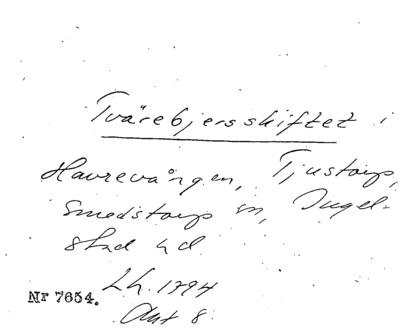 Tvärebjersskiftet i
Havrevången, Tjustorp,
Smedstorps sn, Ingel-
stad hd.
LH. 1794
Akt 8.
Nr 7654.